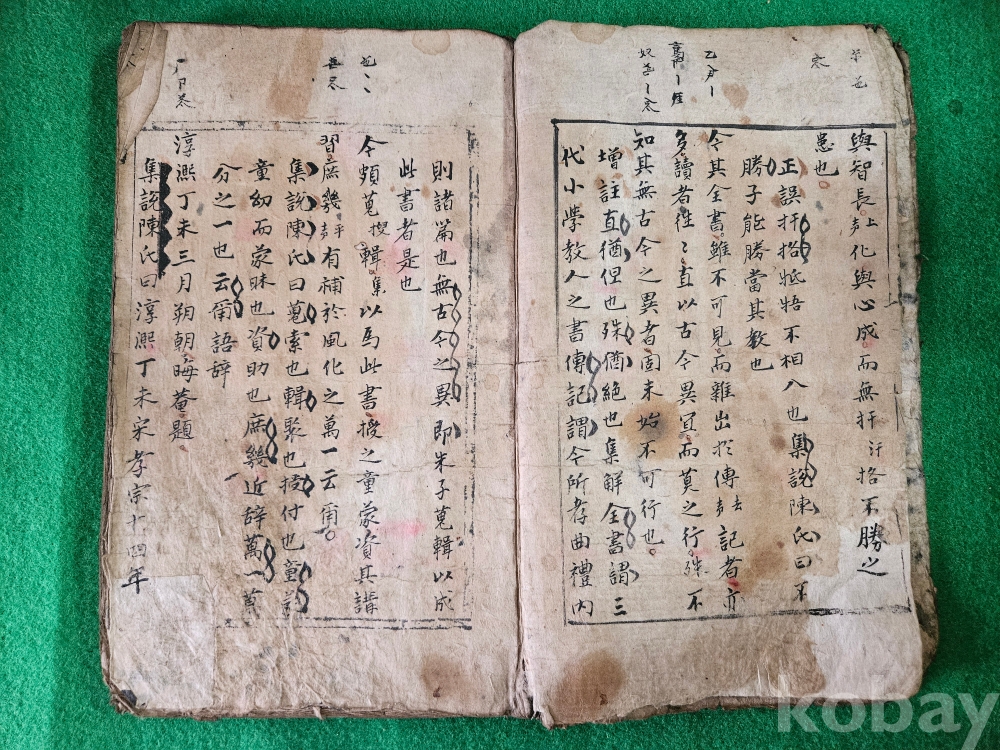 與智長上声化與心成而無扞汗格不勝之
患也
正誤扞格牴牾不相入也集說陳氏曰不
勝子能勝當其教也
今其全書雖不可見而雜出於傳去声記者亦
多讀者往〻直以古今異冝而莫之行殊不
知其無古今之異者固未始不可行也
增註直猶但也殊猶絕也集解全書謂三
代小學教人之書傳記謂今所存曲禮內
則諸篇也無古今之異即朱子蒐輯以成
此書者是也
今頗蒐捜輯集以爲此書授之童蒙資其講
習庶幾平声有補於風化之萬一云爾
集說陳氏曰蒐索也輯聚也授付也童
童幼而蒙昧也資助也庶幾近辞萬一萬
分之一也云爾語辞
淳熙丁未三月朔朝晦菴題
集說陳氏曰淳熙丁未宋孝宗十四年
kobay